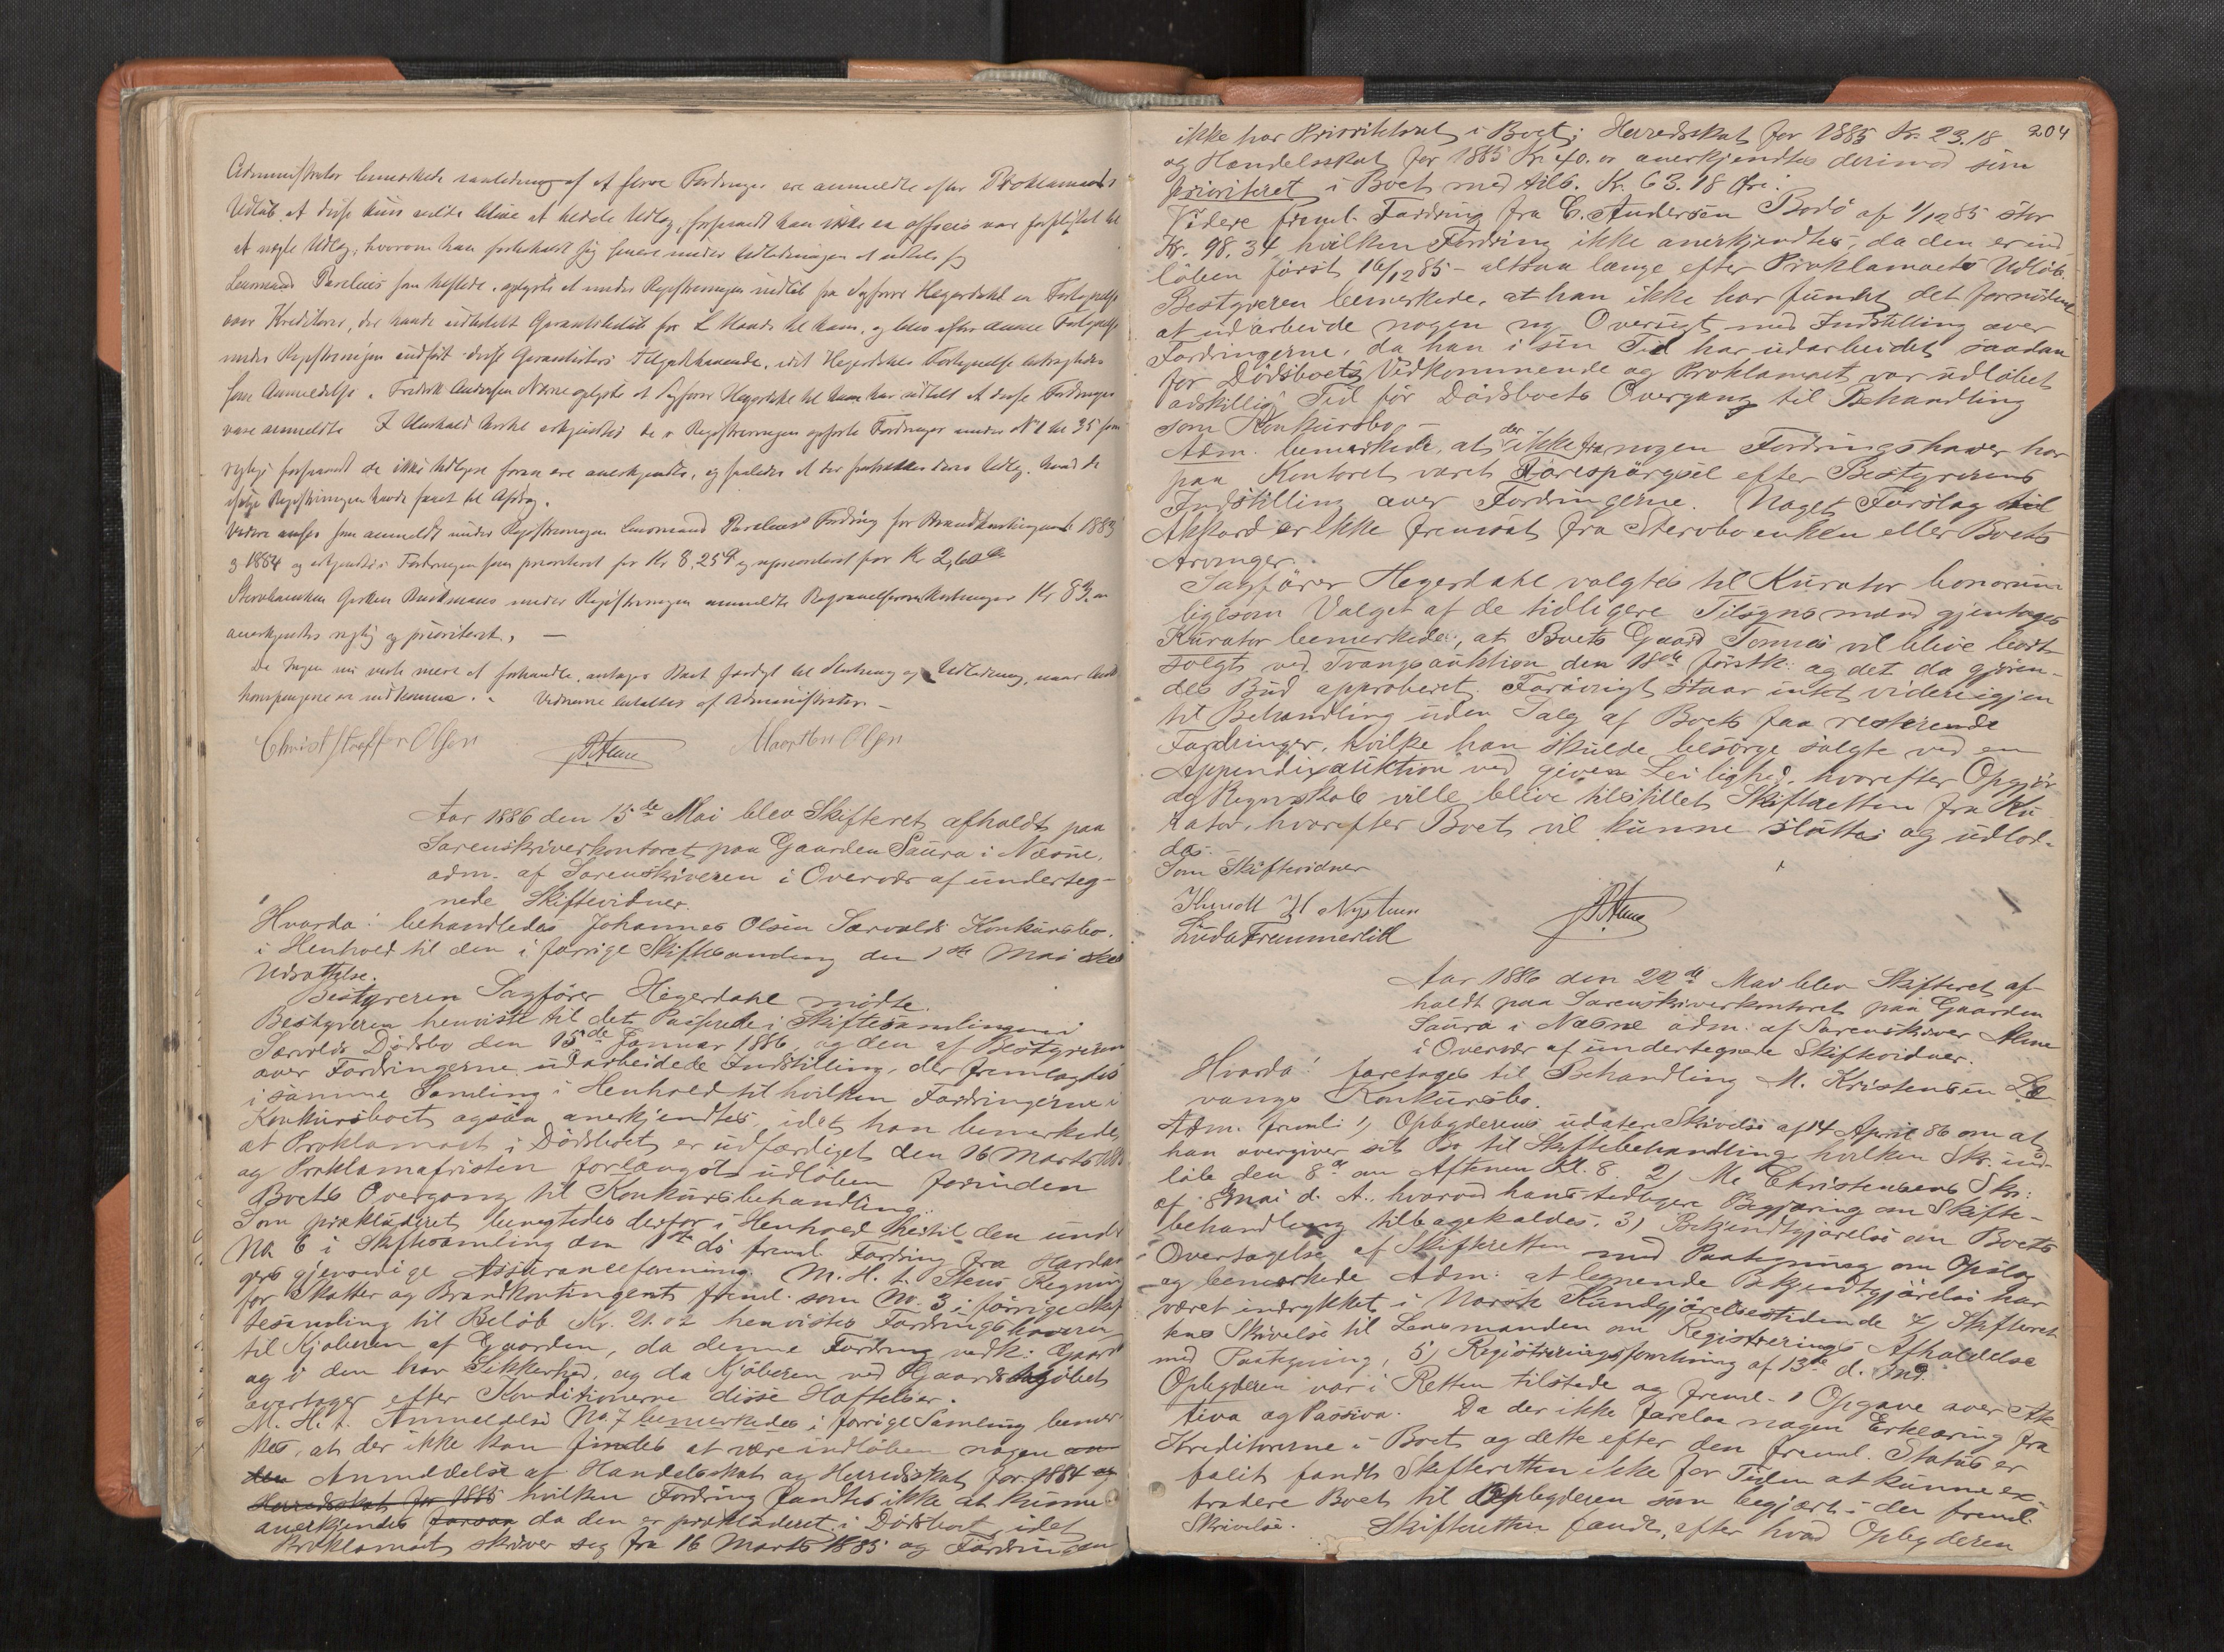 Administrator bemærkede anledning af at flere Fordringer ere anmeldte efter Proklamaets
Udløb, at disse kun ville blive at tildele Udlæg, forsaavidt han ikke ex officio var forpligtet til
at nægte Udlæg, hvorom han forbeholdt sig senere under Udlodningen at udtale sig
Lensmand Parelius som mødte, oplyste at under Registreringen indløb fra Sagfører Hegerdahl en Fortegnelse
over Kreditorer, der havde
under Registreringen anført disse
som Anmeldelse. Fredrik Andersen Næsne oplyste at Sagfører Hegerdahl til ham har udtalt at disse Fordringer
vare anmeldte de i Registreringen opførte Fordringer under No 1 til 35 som
rigtige forsaavidt de ikke tidligere foran ere anerkjendte, og saaledes at der fratrækkes deres Udlæg, hvad de
ifølge Registreringen havde faaet til Afdrag.
Videre ansees som anmeldt under Registreringen Lensmand Parelius's Fordring for Brandkontingent 1883
og 1884 og erkjendtes Fordringen som prioriteret for Kr 8,25 og uprioriteret for Kr 2,60
Stervboenken Buckmans under Registreringen anmeldte Begravelsesomkostninger Kr 83,
anerkjendtes rigtig og prioriteret. —
Da Ingen nu vidste mere at forhandle, antages Boet færdigt til Slutning og Udlodning, naar Auk
tionspengene er indkomne. Vidnerne betaltes af Administrator. —
Christstoffer Olsen Morten Olsen
Aar 1886 den 15de Mai blev Skifteret afholdt paa
Sorenskriverkontoret paa Gaarden Saura i Næsne,
adm. af Sorenskriveren i Overvær af underteg-
nede Skiftevidner.
Hvorda: behandledes Johannes Olsen Sørvolds Konkursbo.
i Henhold til den i forrige Skiftesamling den 1ste Mai skeede
Udsættelse.
Bestyreren Sagfører Hegerdahl mødte.
Bestyreren henviste til det Passerede i Skiftesamlingen i
Sørvolds Dødsbo den 15de Januar 1886, og den af Bestyreren
over Fordringerne udarbeidede Indstilling, der fremlagdes
i samme Samling i Henhold til hvilken Fordringerne i
Konkursboet ogsaa anerkjendtes, idet han bemerkede,
at Proklamaet i Dødsboet er udfærdiget den 16 Marts 1885
og Proklamafristen forlængst udløben forinden
Boets Overgang til Konkursbehandling.
Som prækluderet benegtedes derfor i Henhold hertil den under
No 6 i Skiftesamling den 1ste ds freml. Fordring fra Hardan
gers gjensidige Assuranceforening. M. H. t. Stens Regning
for Skatter og Brandkontingent freml. som No. 3 i forrige Skif
tesamling til Beløb Kr. 21.02 henvistes Fordringshaveren
til Kjøberen af Gaarden, da denne Fordring vedk: Gaard
og i den har Sikkerhed, og da Kjøberen ved Gaardkjøbet
overtager efter Konditionerne disse Heftelser.
M. H. t. Anmeldelse No. 7 bemerkedes i forrige Samling bemer
kes, at der ikke kan findes at være indløben nogen an
den Anmeldelse af Handelsskat og Herredsskat for 1884 og
Herredsskat for 1885 hvilken Fordring fandtes ikke at kunne
anerkjendes forsaa da den er prækluderet i Dødsboet, idet
Proklamaet skriver sig fra 16 Marts 1885 og Fordringen
204
ikke har Prioritetsret i Boet; Herredsskat for 1885 Kr. 23.18
og Handelsskat for 1885 Kr. 40.00 anerkjendtes derimod som
prioriteret i Boet med tils. Kr. 63.18 Øre.
Videre freml. Fordring fra C. Andersen Bodø af 1/12 85 stor
Kr. 98.34 hvilken Fordring ikke anerkjendtes, da den er ind
løben først 16/12 85 – altsaa længe efter Proklamaets Udløb.
Bestyreren bemerkede, at han ikke har fundet det fornødent
at udarbeide nogen ny Oversigt med Indstilling over
Fordringerne, da han i sin Tid har udarbeidet saadan
for Dødsboets Vidkommende og Proklamaet var udløbet
adskillig Tid før Dødsboets Overgang til Behandling
som Konkursbo. —
Adm. bemerkede, at der ikke fra nogen Fordringshaver har
paa Kontoret været Forespørgsel efter Bestyrerens
Indstilling over Fordringerne. Noget Forslag til
Akkord er ikke fremsat fra Stervboenken eller Boets
Arvinger.
Sagfører Hegerdahl valgtes til Kurator bonorum
ligesom Valget af de tidligere Tilsynsmænd gjentoges
Kurator bemerkede, at Boets Gaard Tonnes vil blive bort-
solgt ved Tvangsauktion den 18de førstk: og det da gjøren-
des Bud approberet. Forøvrigt staar intet videre igjen
til Behandling uden Salg af Boets faa resterende
Fordringer, hvilke han skulde besørge solgte ved en
Appendixauktion ved given Leilighed, hvorefter Opgjør
og Regnskab ville blive tilstillet Skifteretten fra Ku
rator, hvorefter Boet vil kunne sluttes og udlod-
des. –
Som Skiftevidner
Nystuen
Aar 1886 den 22de Mai blev Skifteret af-
holdt paa Sorenskriverkontoret paa Gaarden
Saura i Næsne adm: af Sorenskriver
i Overvær af undertegnede Skiftevidner.
Hvorda: foretoges til Behandling M. Kristensen Lø
vangs Konkursbo.
Adm. freml: 1) Opbyderens udaterede Skrivelse af 14 April 86 om at
han overgiver sit Bo til Skiftebehandling hvilken Skr. ind-
løb den 8de om Aftenen Kl. 8. 2) M. Christensens Skr:
af 8 Mai d. A., hvorved hans tidligere Begjæring om Skifte-
behandling tilbagekaldes. 3) Bekjendtgjørelse om Boets
Overtagelse af Skifteretten med Paategning om Opslag
og bemerkede Adm: at lignende Bekjendtgjørelse har
været indrykket i Norsk Kundgjørelsestidende 4) Skifteret
tens Skrivelse til Lensmanden om Registrerings Afholdelse
med Paategning, 5) Registreringsforretning af 13de d. Md.
Opbyderen var i Retten tilstede og freml. 1 Opgave over Ak
tiva og Passiva. Da der ikke forelaa nogen Erklæring fra
Kreditorerne i Boet og dette efter den freml. Status er
falit fandt Skifteretten ikke for Tiden at kunne ex-
tradere Boet til Opbyderen som begjært i den freml.
Skrivelse. Skifteretten fandt, efter hvad Opbyderen